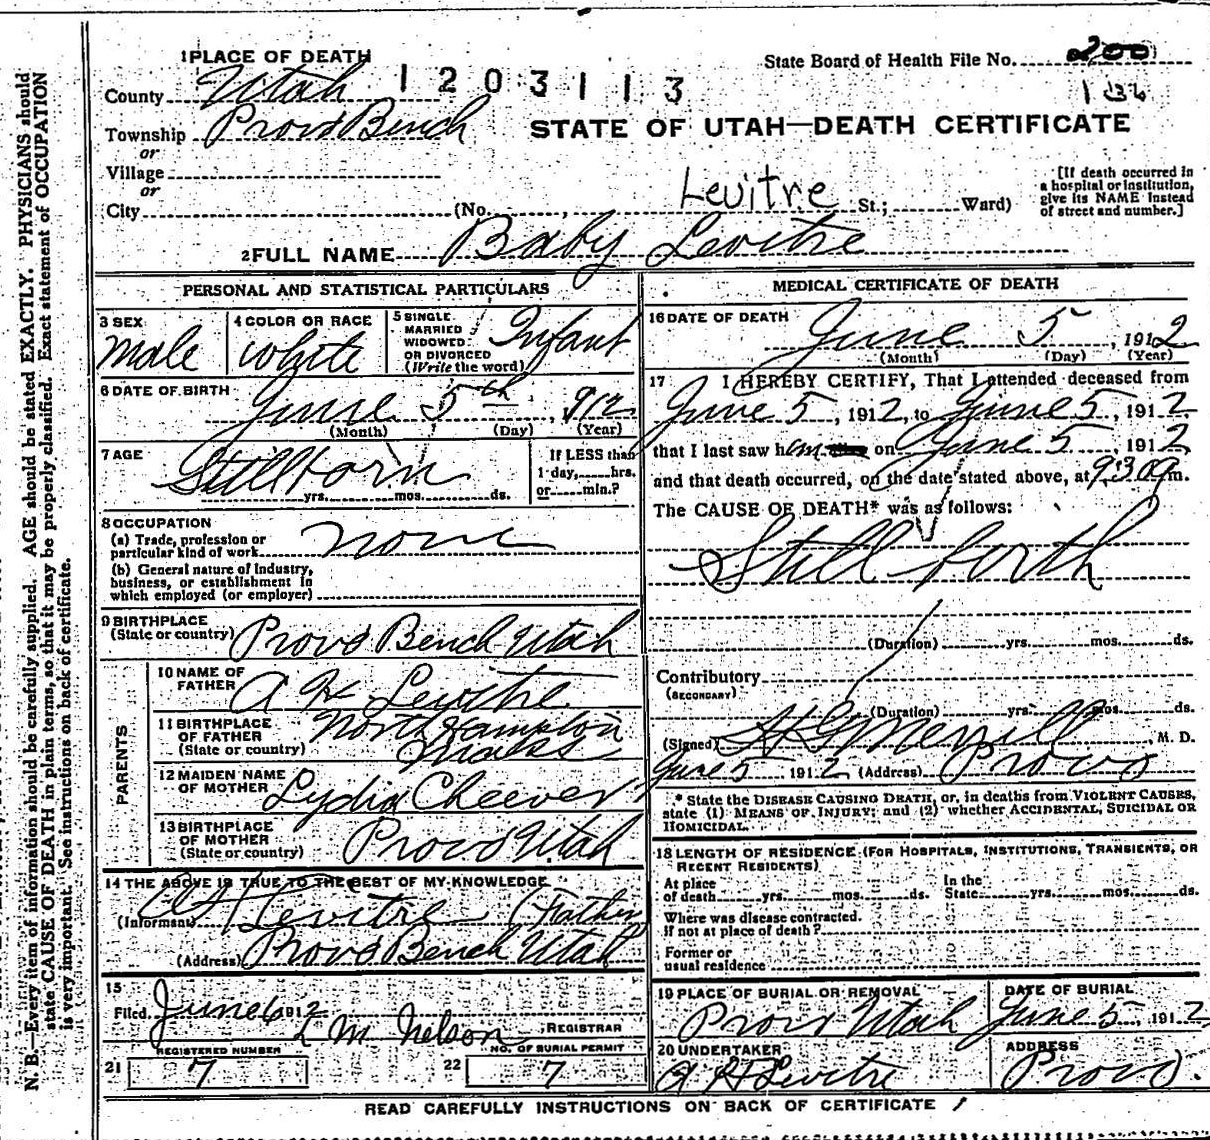 1 PLACE OF DEATH
State Board of Health File No. 200
County Utah 1203113
136
Township Provo Bench
STATE OF UTAH—DEATH CERTIFICATE
or
Village
or
City (No. , Levitre St.; Ward)
[If death occurred in
a hospital or institution,
give its NAME instead
of street and number.]
2 FULL NAME Baby Levitre
PERSONAL AND STATISTICAL PARTICULARS
3 SEX
Male
4 COLOR OR RACE
White
5 SINGLE
MARRIED
WIDOWED
OR DIVORCED
(Write the word)
Infant
6 DATE OF BIRTH
June 5th, 912
(Month) (Day) (Year)
7 AGE
Stillborn
yrs. mos. ds.
If LESS than
1 day, hrs.
or min.?
8 OCCUPATION
(a) Trade, profession or
particular kind of work none
(b) General nature of industry,
business, or establishment in
which employed (or employer)
9 BIRTHPLACE
(State or country) Provo Bench Utah
PARENTS
10 NAME OF
FATHER A H Levitre
11 BIRTHPLACE
OF FATHER
(State or country) North Hampton
Mass
12 MAIDEN NAME
OF MOTHER Lydia Cheever
13 BIRTHPLACE
OF MOTHER
(State or country) Provo Utah
14 THE ABOVE IS TRUE TO THE BEST OF MY KNOWLEDGE
(Informant) A H Levitre (Father
(Address) Provo Bench Utah
15
Filed June 6 1912
L M Nelson, REGISTRAR
21 REGISTERED NUMBER 7
22 NO. OF BURIAL PERMIT 7
MEDICAL CERTIFICATE OF DEATH
16 DATE OF DEATH
June 5, 1912
(Month) (Day) (Year)
17 I HEREBY CERTIFY, That I attended deceased from
June 5, 1912, to June 5, 1912
that I last saw h on June 5, 1912
and that death occurred, on the date stated above, at 9:30 a m.
The CAUSE OF DEATH* was as follows:
Still birth
(Duration) yrs. mos. ds.
Contributory
(SECONDARY)
(Duration) yrs. mos. ds.
(Signed) H G Merrill, M. D.
June 5 1912 (Address) Provo
* State the DISEASE CAUSING DEATH, or, in deaths from VIOLENT CAUSES,
state (1) MEANS OF INJURY; and (2) whether ACCIDENTAL, SUICIDAL OR
HOMICIDAL.
18 LENGTH OF RESIDENCE (FOR HOSPITALS, INSTITUTIONS, TRANSIENTS, OR
RECENT RESIDENTS)
At place
of death yrs. mos. ds.
In the
State yrs. mos. ds.
Where was disease contracted.
If not at place of death?
Former or
usual residence
19 PLACE OF BURIAL OR REMOVAL
Provo Utah
DATE OF BURIAL
June 5, 1912
20 UNDERTAKER
A H Levitre
ADDRESS
Provo.
READ CAREFULLY INSTRUCTIONS ON BACK OF CERTIFICATE
N. B.—Every item of information should be carefully supplied. AGE should be stated EXACTLY. PHYSICIANS should
state CAUSE OF DEATH in plain terms, so that it may be properly classified. Exact statement of OCCUPATION
is very important. See instructions on back of certificate.